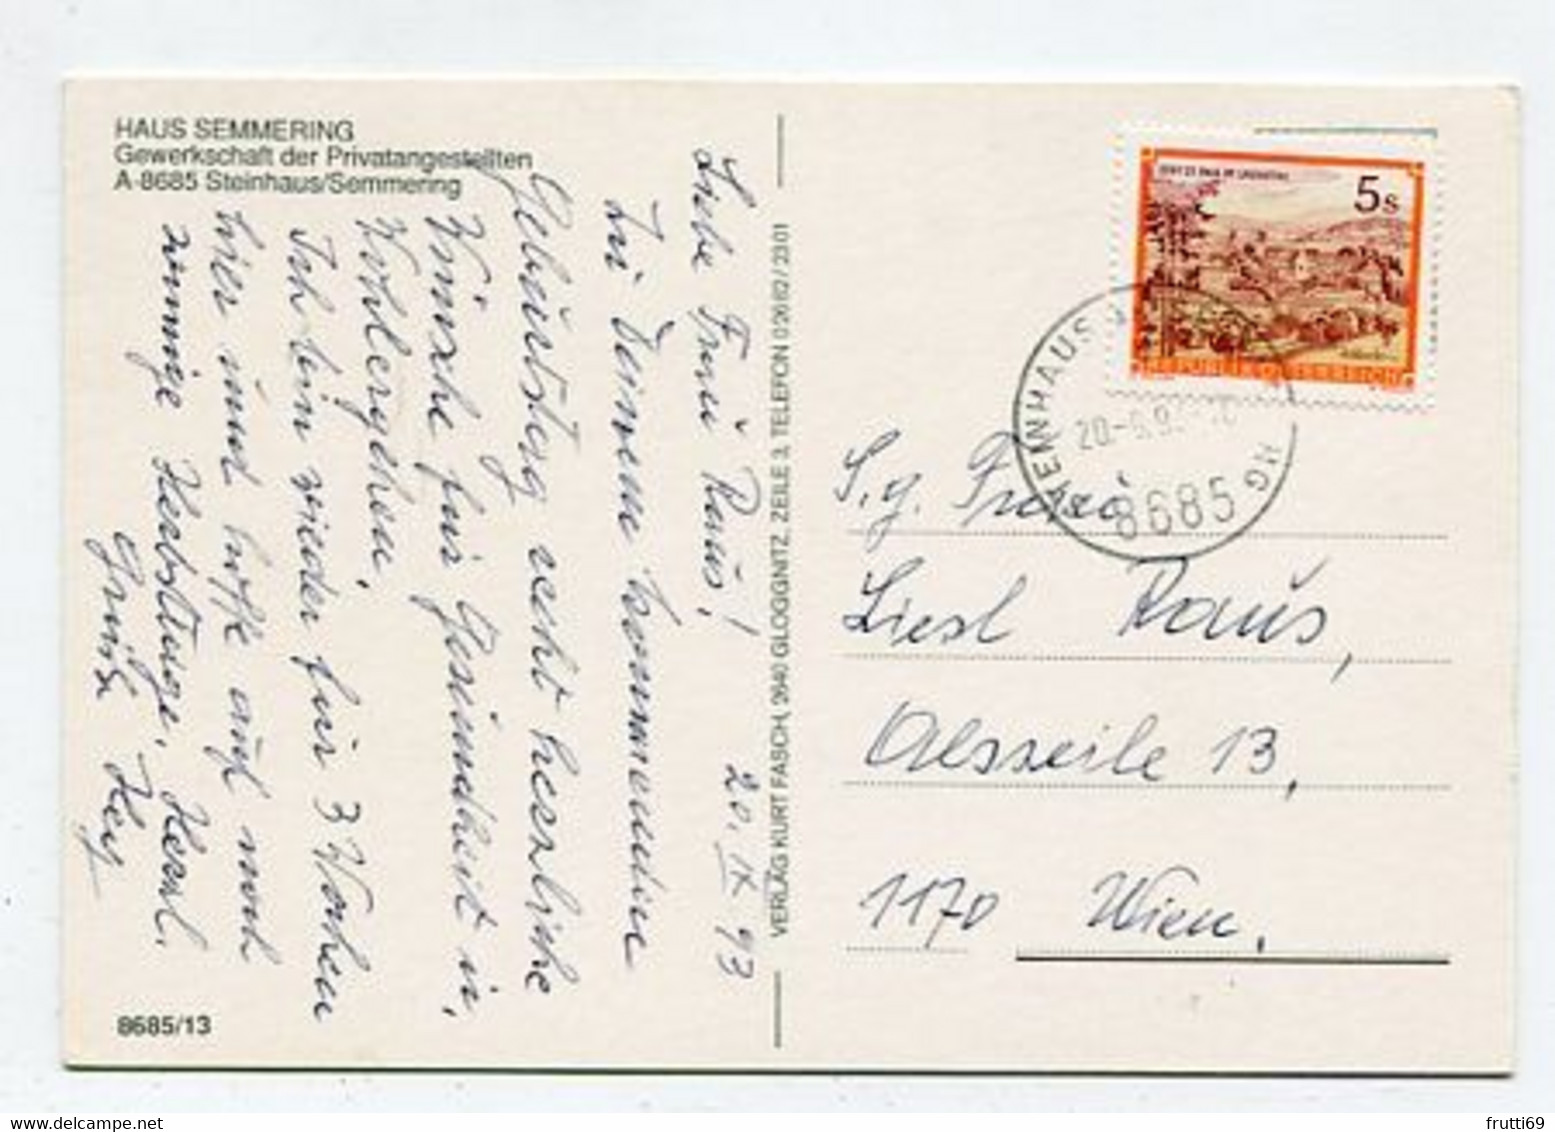 HAUS SEMMERING
Gewerkschaft der Privatangestellten
A-8685 Steinhaus/Semmering
Liebe Frau Raus!
20. IX 93
Zu Deinem kommenden
Geburtstag recht herzliche
Wünsche für Gesundheit u.
Wohlergehen.
Ich bin wieder für 3 Wochen
hier und hoffe auf noch
sonnige Herbsttage. Herzl.
Grüße
8685/13
VERLAG KURT FASCH, 2640 GLOGGNITZ, ZEILE 3, TELEFON 02662/2301
STIFT ST. PAUL IM LAVANTTAL
5s
REPUBLIK ÖSTERREICH
STEINHAUS
NG
8685
S. g. Frau
Liesl Raus,
Alszeile 13,
1170 Wien.
frutti69